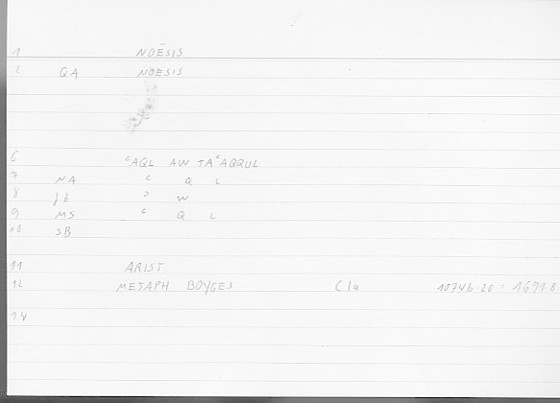 1 NOĒSIS
2 QA NOESIS
6 ʿAQL AW TAʿAQQUL
7 NA ʿ Q L
8 ʾ W
9 MS ʿ Q L
10 SB
11 ARIST
12 METAPH BOYGES C1a 1074b 20 = 1691.8
14